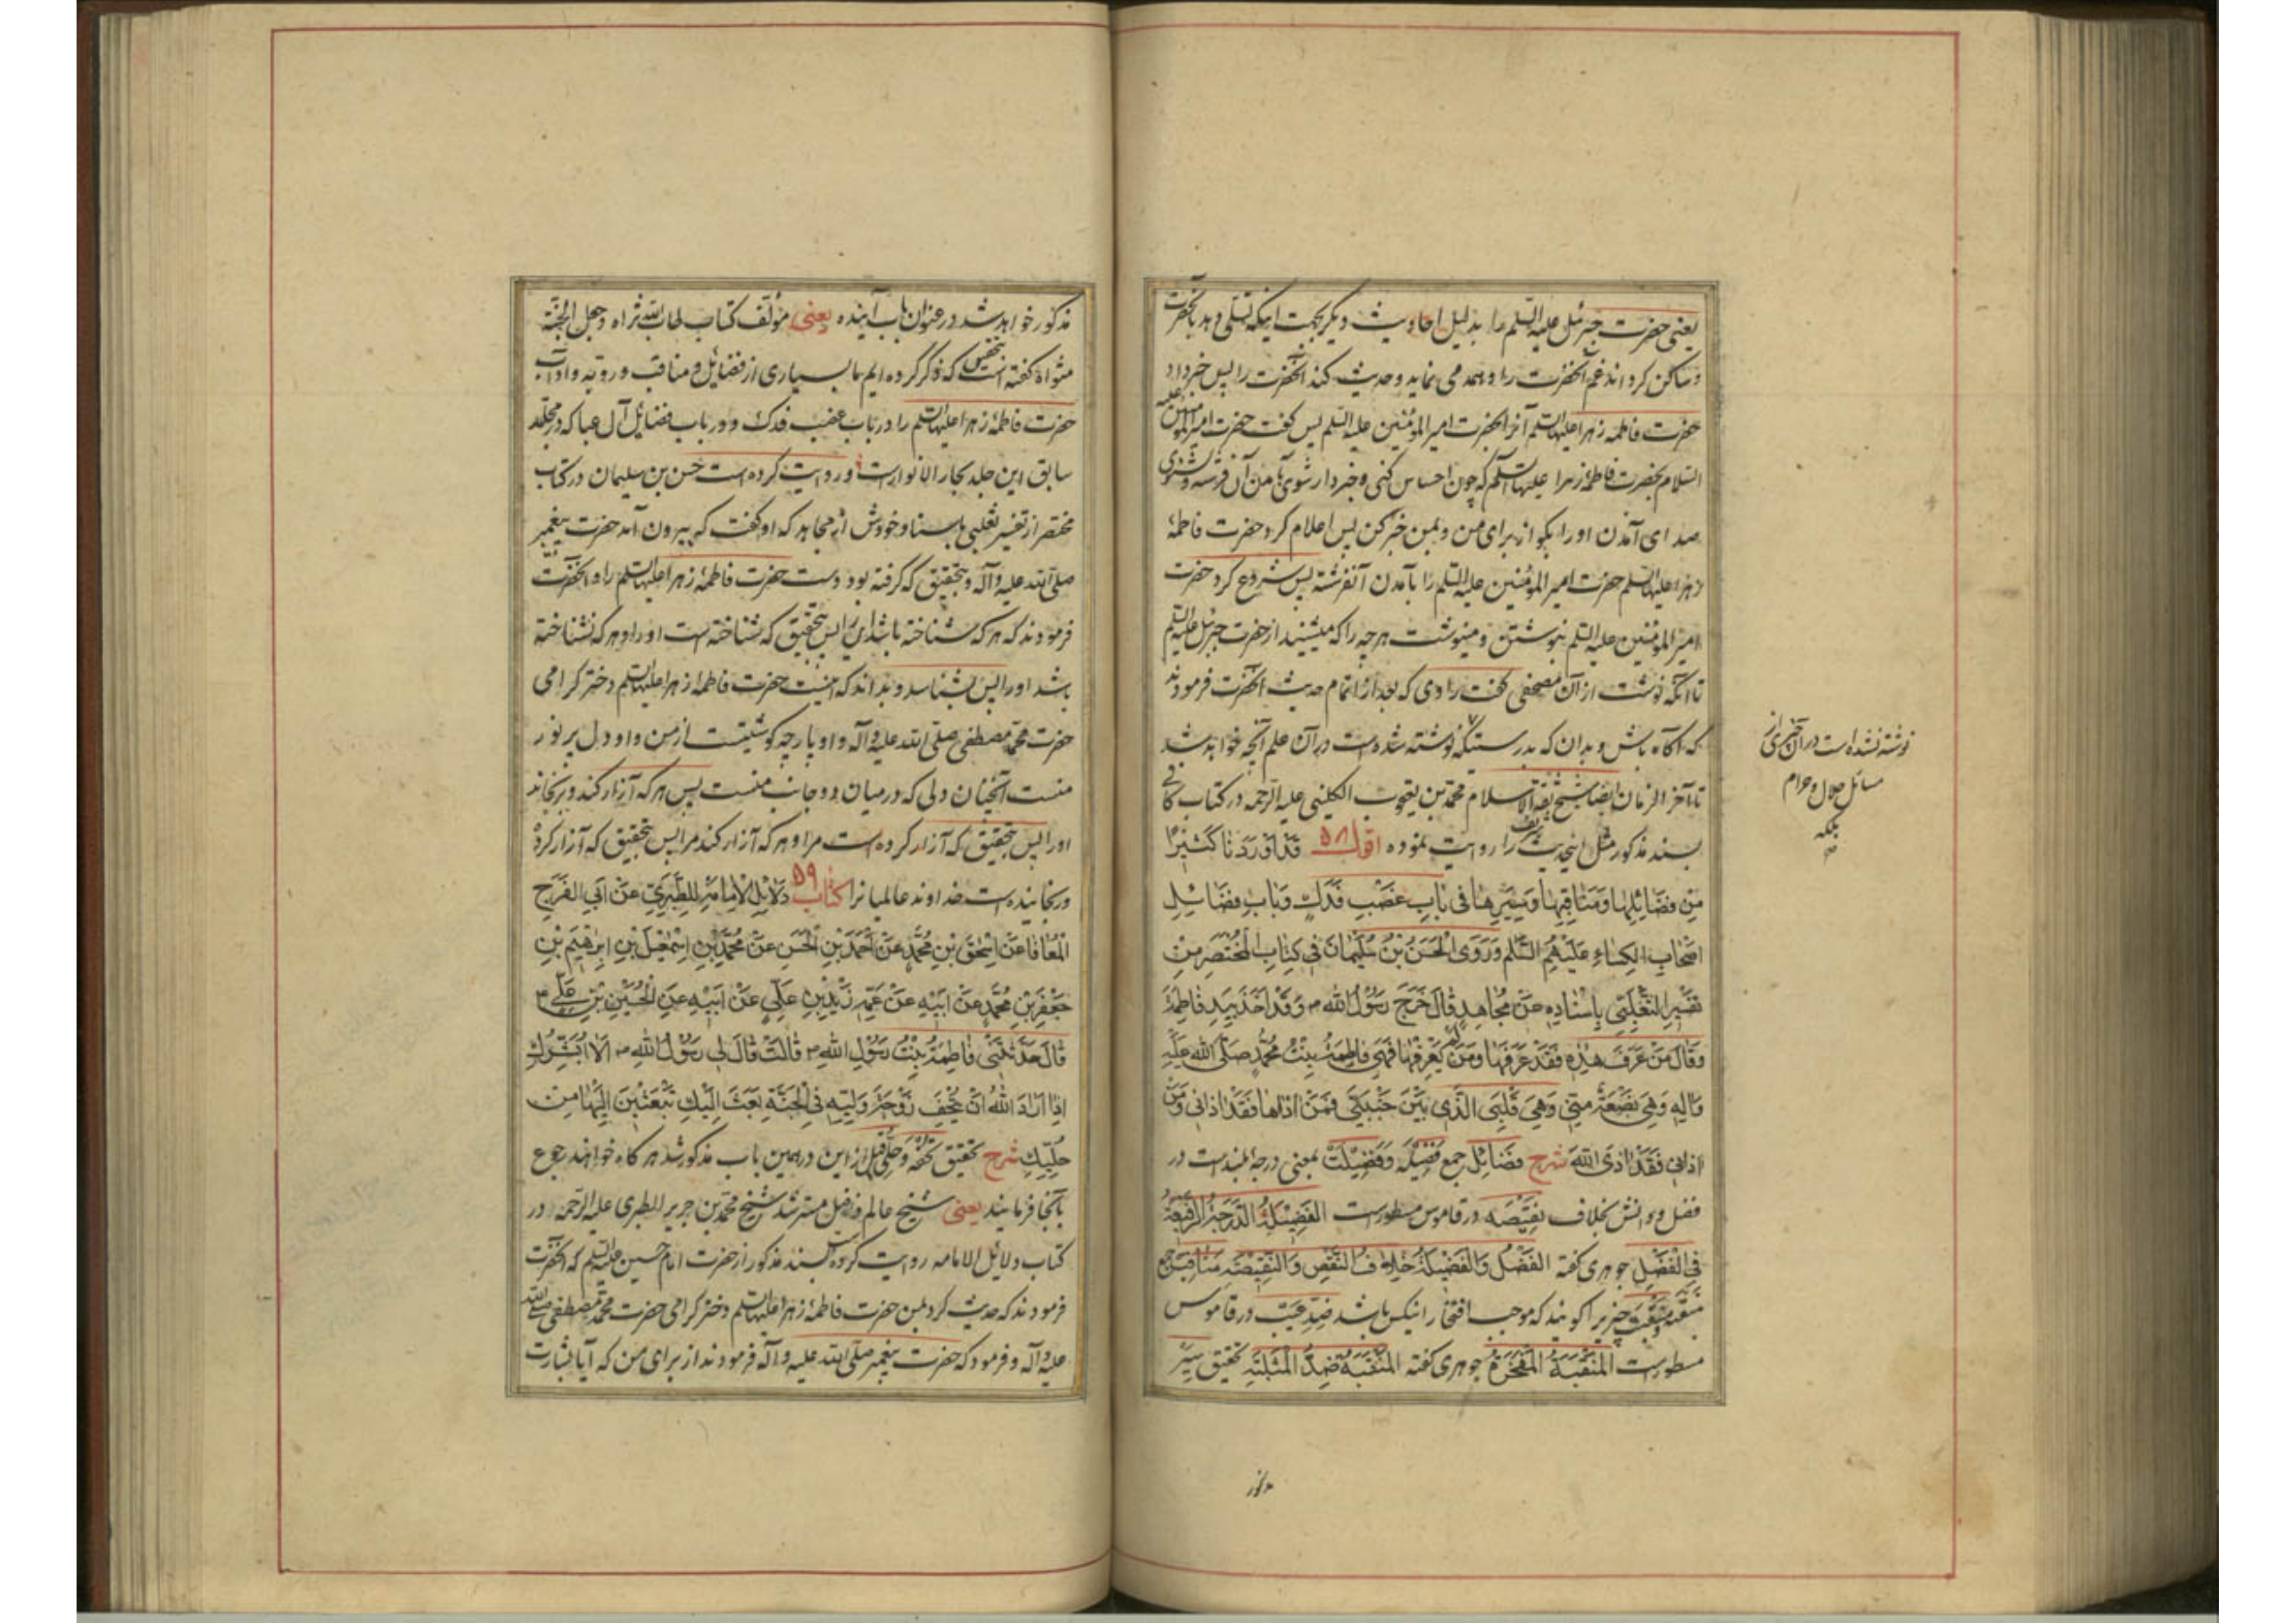 یعنی حضرت جبرئیل علیه السلم را بدلیل احادیث دیگر بجهت اینکه تسلی دهد بآنحضرت
و ساکن کرداند غم آنحضرت را و همدمی نماید و حدیث کند آنحضرت را پس خبر داد
حضرت فاطمه زهرا علیها السلم آخر الحضرت امیر المؤمنین علیه السلم پس کفت حضرت امیر المؤمنین علیه
السلام بحضرت فاطمهٔ زهرا علیها السلم که چون احساس کنی و خبردار شوی بآمدن آن فرشته و شنوی
صدای آمدن او را بکو از برای من و بمن خبر کن پس اعلام کرد حضرت فاطمهٔ
زهرا علیها السلم حضرت امیر المؤمنین علیه السلم را بآمدن آنفرشته پس شروع کرد حضرت
امیر المؤمنین علیه السلم بنوشتن و مینوشت هرچه را که میشنید از حضرت جبرئیل علیه السلم
تا آنکه نوشت از آن مصحفی کفت راوی که بعد از اتمام حدیث آنحضرت فرمودند
که آکاه باش و بدان که بدرستیکه نوشته شده است در آن علم آنچه خواهد شد
تا آخر الزمان ایضا شیخ ثقة الاسلام محمد بن یعقوب الکلینی علیه الرحمه در کتاب کافی
بسند مذکور مثل اینحدیث شریف را روایت نموده اقول ۵۸ قَدْ اَوْرَدْنَا كَثِيرًا
مِنْ فَضَائِلِهَا وَمَنَاقِبِهَا وَسِيَرِهَا فِي بَابِ غَصْبِ فَدَكٍ وَبَابِ فَضَائِلِ
اَصْحَابِ الْكِسَاءِ عَلَيْهِمُ السَّلَم وَرَوَى الْحَسَنُ بْنُ سُلَيْمَانَ فِي كِتَابِ الْمُخْتَصَرِ مِنْ
تَفْسِيرِ الثَّعْلَبِيِّ بِاِسْنَادِهِ عَنْ مُجَاهِدٍ قَالَ خَرَجَ رَسُولُ اللهِ ص وَقَدْ اَخَذَ بِيَدِ فَاطِمَةَ
وَقَالَ مَنْ عَرَفَ هٰذِهِ فَقَدْ عَرَفَهَا وَمَنْ لَمْ يَعْرِفْهَا فَهِيَ فَاطِمَةُ بِنْتُ مُحَمَّدٍ صَلَّى اللهُ عَلَيْهِ
وَآلِهِ وَهِيَ بَضْعَةٌ مِنِّي وَهِيَ قَلْبِيَ الَّذِي بَيْنَ جَنْبَيَّ فَمَنْ اٰذَاهَا فَقَدْ اٰذَانِي وَمَنْ
اٰذَانِي فَقَدْ اٰذَى اللهَ شرح فَضَائِل جمع فَضِيلَة وفَضِيلَت بمعنی درجه بلند است در
فضل و دانش بخلاف نقیصه در قاموس مسطورست الفَضِيلَةُ الدَّرَجَةُ الرَّفِيعَةُ
فِي الْفَضْلِ جوهری کفته الفَضْلُ وَالْفَضِيلَةُ خِلَافُ النَّقْصِ وَالنَّقِيصَةِ مَنَاقِب جمع
مَنْقَبَه و مَنْقَبَت چیزیرا کویند که موجب افتخار آنکس باشد ضدّ عیب در قاموس
مسطورست المَنْقَبَةُ المَفْخَرَةُ جوهری کفته المَنْقَبَةُ ضِدُّ الْمَثْلَبَةِ تحقیق سِيَر
نوشته نشده است در آن چیزی از
مسائل حلال و حرام
بلکه
مذکور
مذکور خواهد شد در عنوان باب آینده یعنی مؤلف کتاب طاب الله ثراه و جعل الجنة
مثواه کفته است بتحقیق که ذکر کرده ایم ما بسیاری از فضایل و مناقب و رویه و آداب
حضرت فاطمهٔ زهرا علیها السلم را در باب غصب فدک و در باب فضایل آل عبا که در مجلد
سابق این جلد بحار الانوارست و روایت کرده است حسن بن سلیمان در کتاب
مختصر از تفسیر ثعلبی باسناد خودش از مجاهد که او کفت که بیرون آمد حضرت پیغمبر
صلی الله علیه و آله و بتحقیق که کرفته بود دست حضرت فاطمهٔ زهرا علیها السلم را و آنحضرت
فرمودند که هر که شناخته باشد این را پس بتحقیق که شناخته است او را و هر که نشناخته
باشد او را پس بشناسد و بداند که اینست حضرت فاطمهٔ زهرا علیها السلم دختر کرامی
حضرت محمد مصطفی صلی الله علیه و آله و او پارچه کوشتیست از من و او دل پر نور
منست آنچنان دلی که در میان دو جانب منست پس هر که آزار کند و برنجاند
او را پس بتحقیق که آزار کرده است مرا و هر که آزار کند مرا پس بتحقیق که آزار کرده
و رنجانیده است خداوند عالمیانرا كتاب ۵۹ دَلَائِلِ الْاِمَامَةِ لِلطَّبَرِيِّ عَنْ اَبِي الْفَرَجِ
الْمُعَافَا عَنْ اِسْحٰقَ بْنِ مُحَمَّدٍ عَنْ اَحْمَدَ بْنِ الْحَسَنِ عَنْ مُحَمَّدِ بْنِ اِسْمٰعِيلَ بْنِ اِبْرٰهِيمَ بْنِ
جَعْفَرِ بْنِ مُحَمَّدٍ عَنْ اَبِيهِ عَنْ عَمِّهِ زَيْدِ بْنِ عَلِيٍّ عَنْ اَبِيهِ عَنِ الْحُسَيْنِ بْنِ عَلِيٍّ ع
قَالَ حَدَّثَتْنِي فَاطِمَةُ بِنْتُ رَسُولِ اللهِ ص قَالَتْ قَالَ لِي رَسُولُ اللهِ ص اَلَا اُبَشِّرُكِ
اِذَا اَرَادَ اللهُ اَنْ يُتْحِفَ زَوْجَةَ وَلِيِّهِ فِي الْجَنَّةِ بَعَثَ اِلَيْكِ تَبْعَثِينَ اِلَيْهَا مِنْ
حُلِيِّكِ شرح تحقیق تحفه و حلی قبل از این در همین باب مذکور شد هر کاه خواهند رجوع
بآنجا فرمایند یعنی شیخ عالم فاضل مسترشد شیخ محمد بن جریر الطبری علیه الرحمه در
کتاب دلائل الامامه روایت کرده بسند مذکور از حضرت امام حسین علیه السلم که آنحضرت
فرمودند که حدیث کرد بمن حضرت فاطمهٔ زهرا علیها السلم دختر کرامی حضرت محمد مصطفی صلی الله
علیه و آله و فرمود که حضرت پیغمبر صلی الله علیه و آله فرمودند از برای من که آیا بشارت